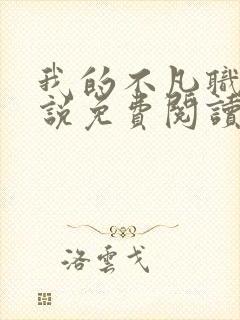 我的不凡職
說免費閱讀
洛雲戈